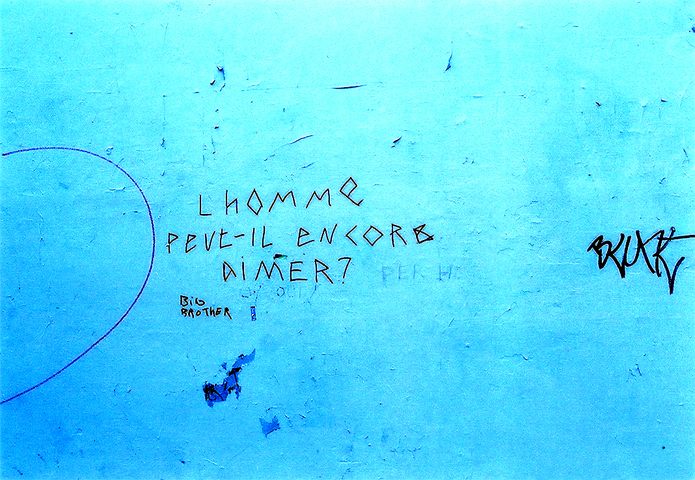 LHOMME
PEUT-IL ENCORE
AIMER?
BIG
BROTHER